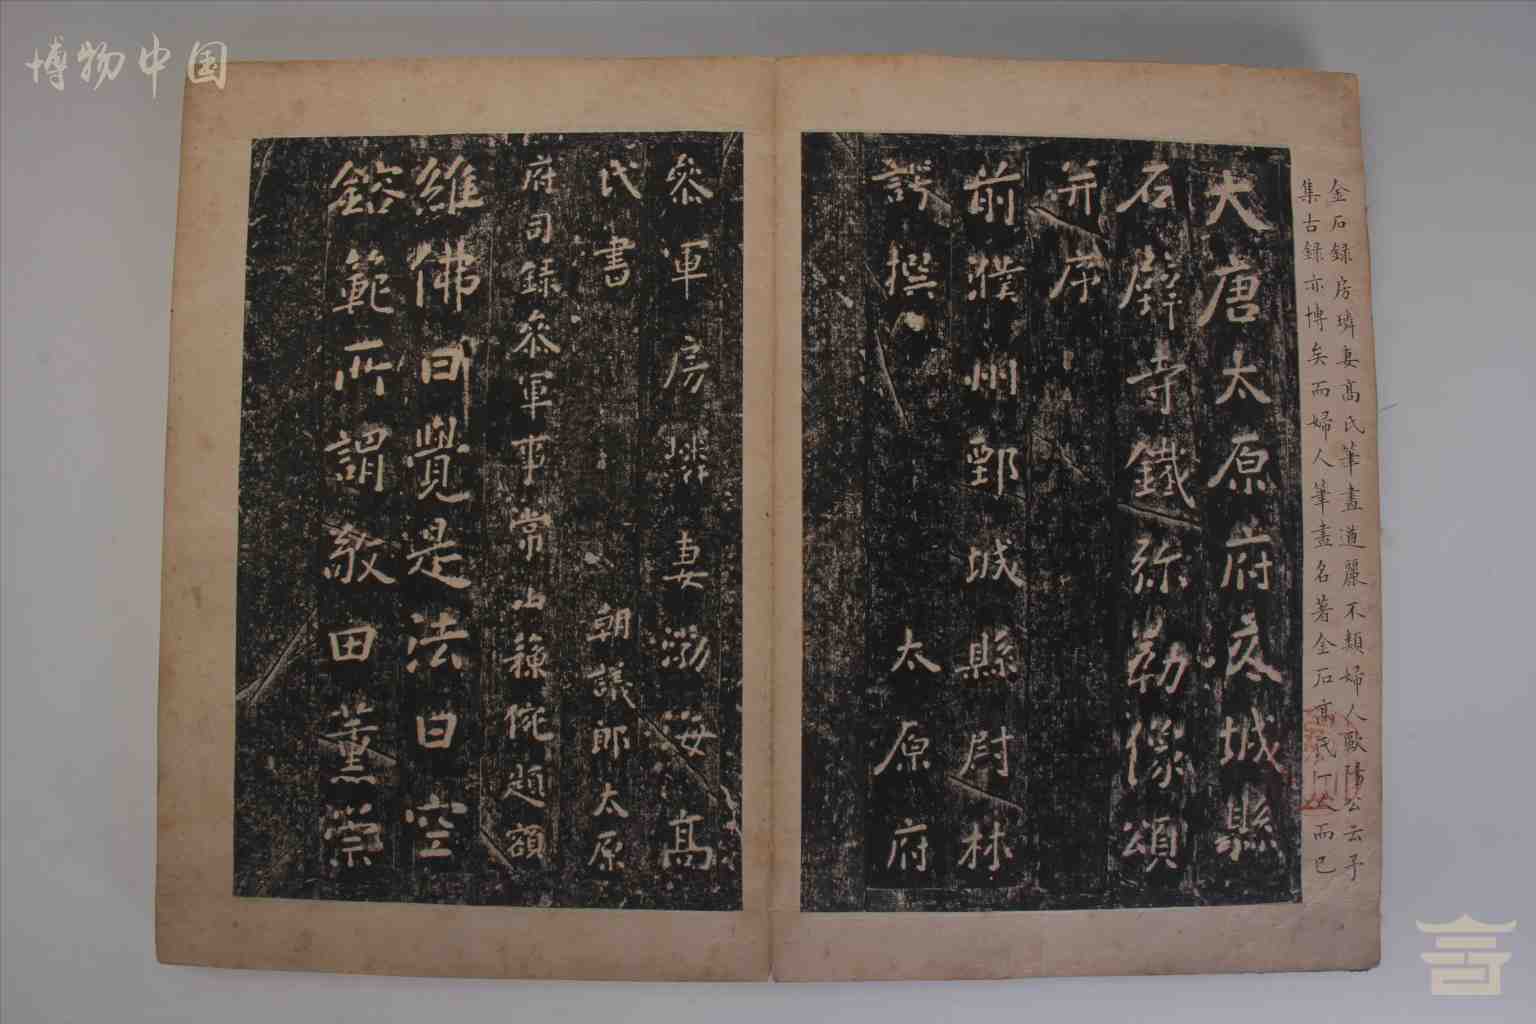 博物中国
金石録房璘妻高氏筆畫遒麗不類婦人歐陽公云予
集古録亦博矣而婦人筆畫名著金石高氏一人而已
大唐太原府交城縣
石壁寺鐵弥勒像頌
并序
前濮州鄄城縣尉林
諤撰 太原府
叅軍房璘妻渤海高
氏書 朝議郎太原
府司録叅軍事常山蘓倇題額
維佛曰覺是法曰空
鎔範所謂敎田薰崇